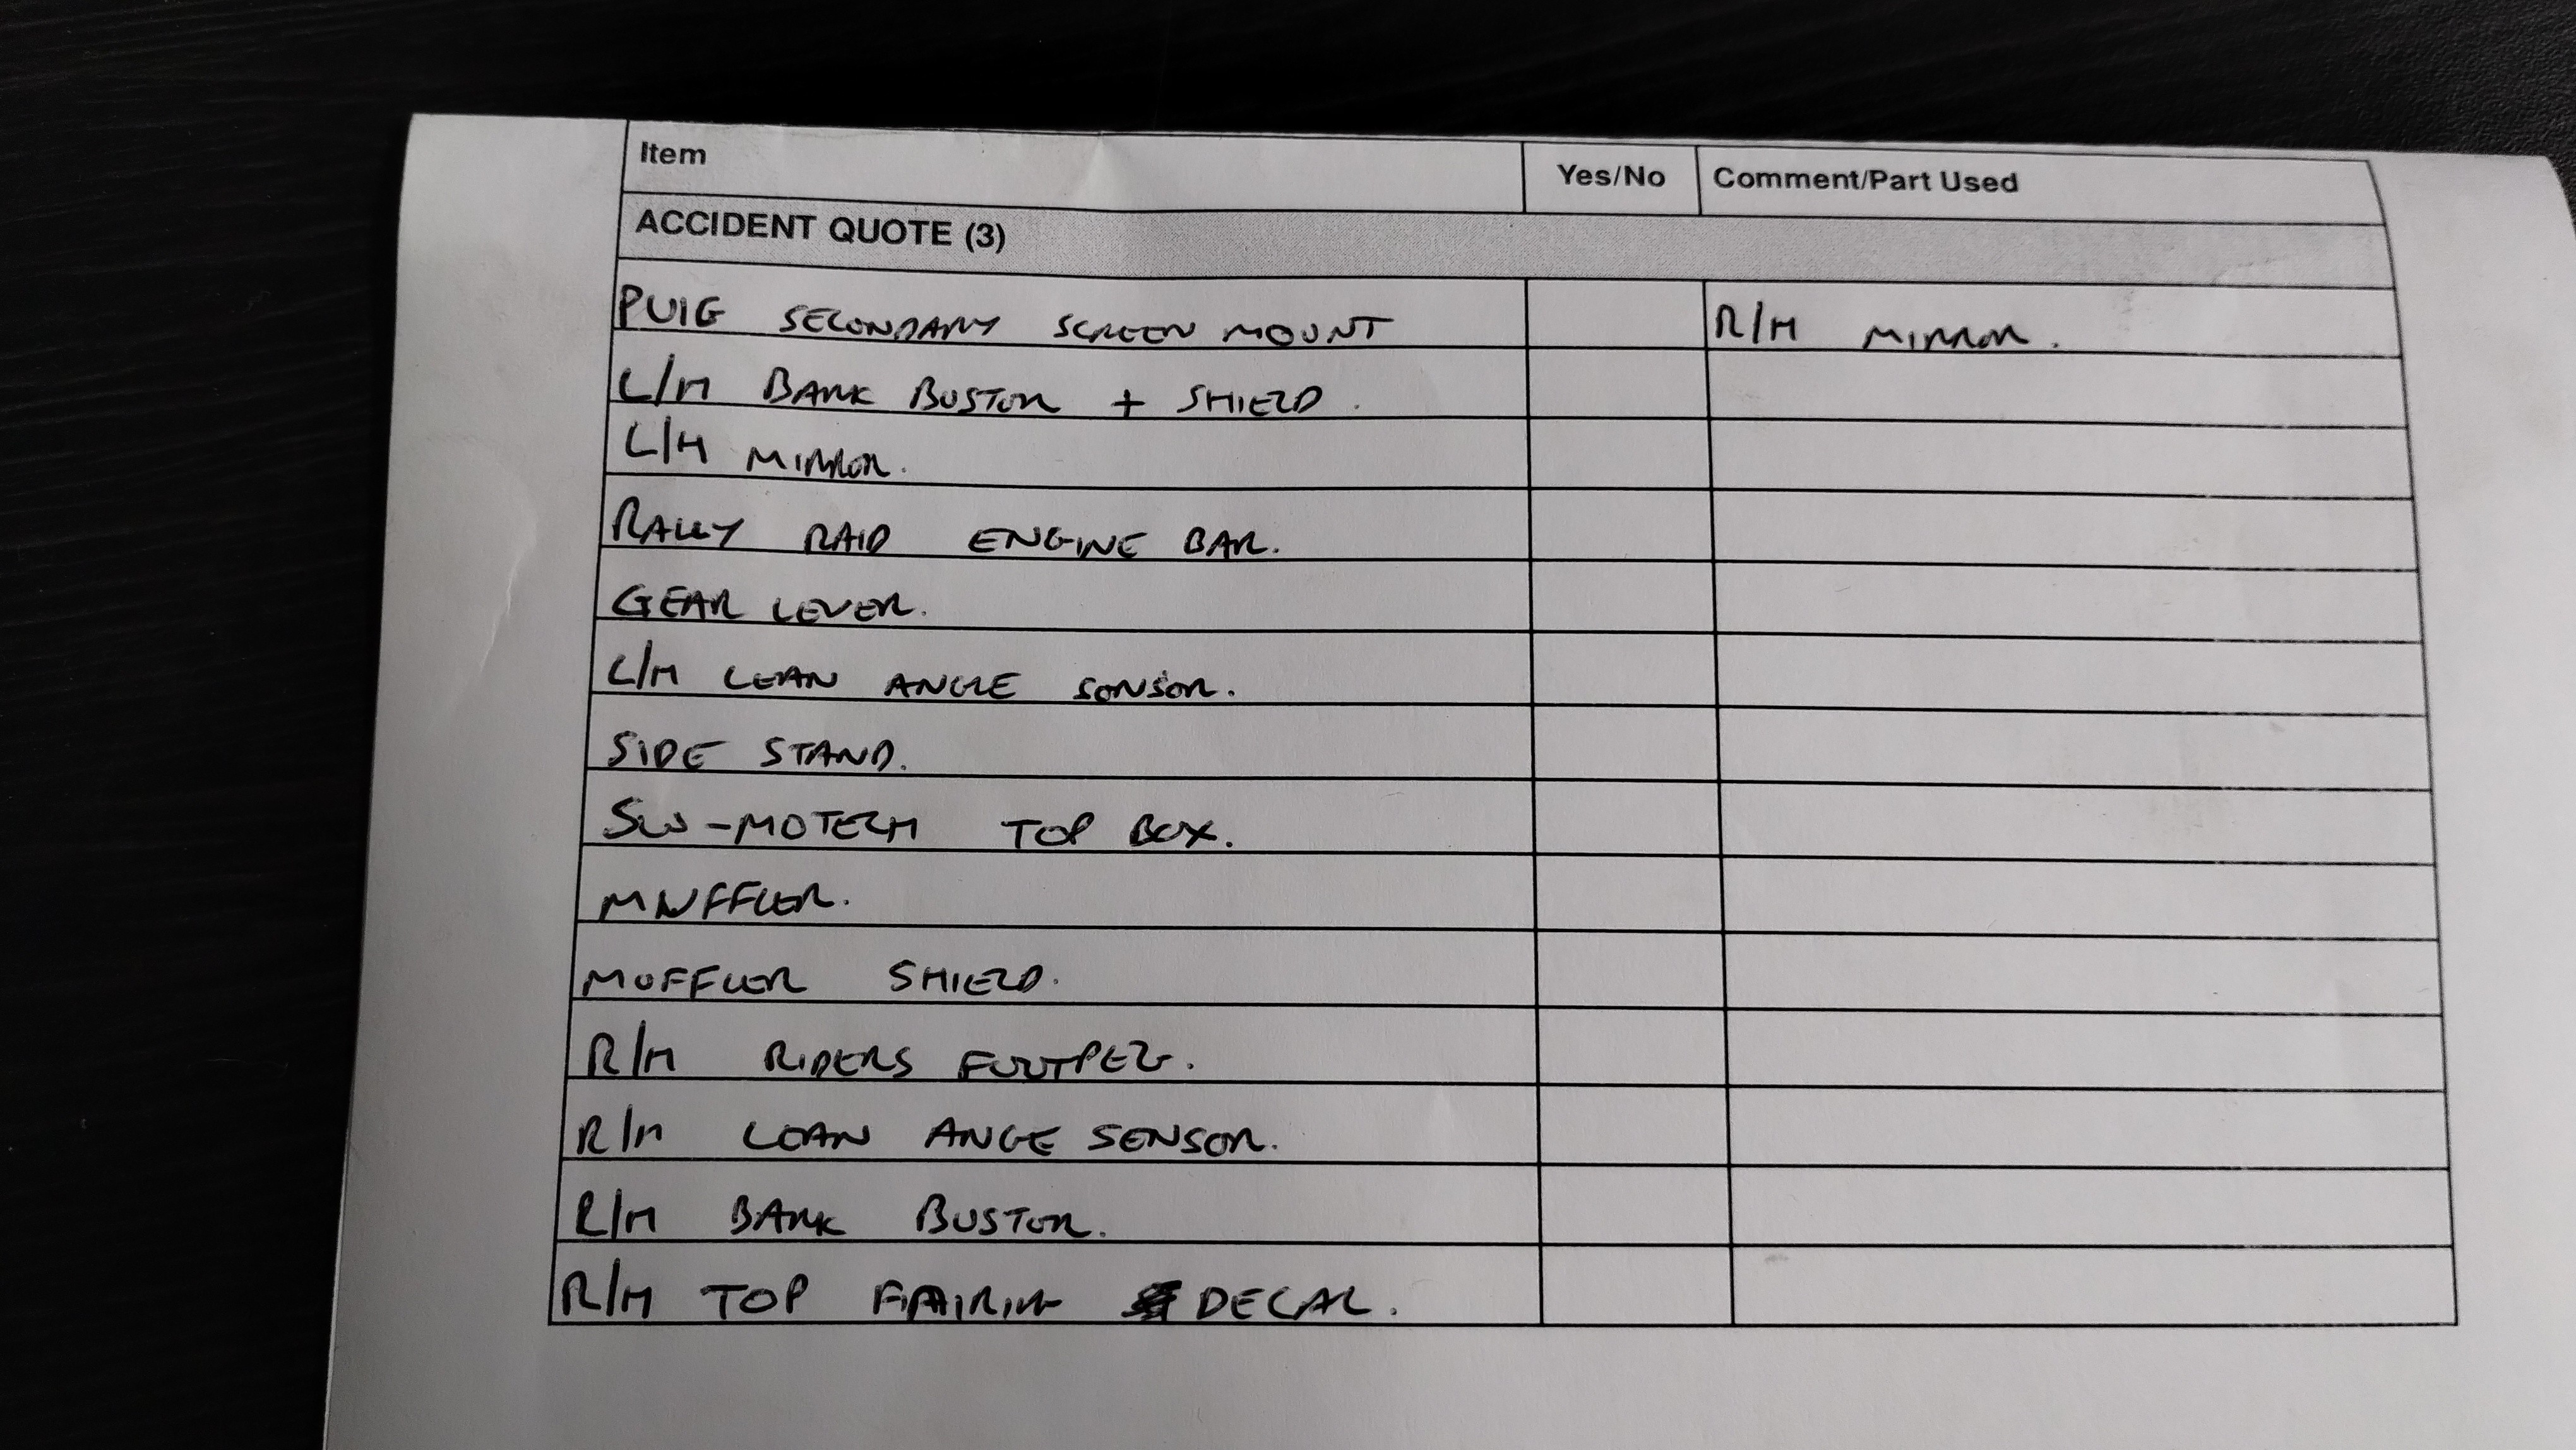 Item Yes/No Comment/Part Used
ACCIDENT QUOTE (3)
PUIG SECONDARY SCREEN MOUNT R/H MIRROR.
L/H BARK BUSTER + SHIELD.
L/H MIRROR.
RALLY RAID ENGINE BAR.
GEAR LEVER.
L/H LEAN ANGLE SENSOR.
SIDE STAND.
SW-MOTECH TOP BOX.
MUFFLER.
MUFFLER SHIELD.
R/H RIDERS FOOTPEG.
R/H LEAN ANGE SENSOR.
R/H BARK BUSTER.
R/H TOP FAIRING DECAL.